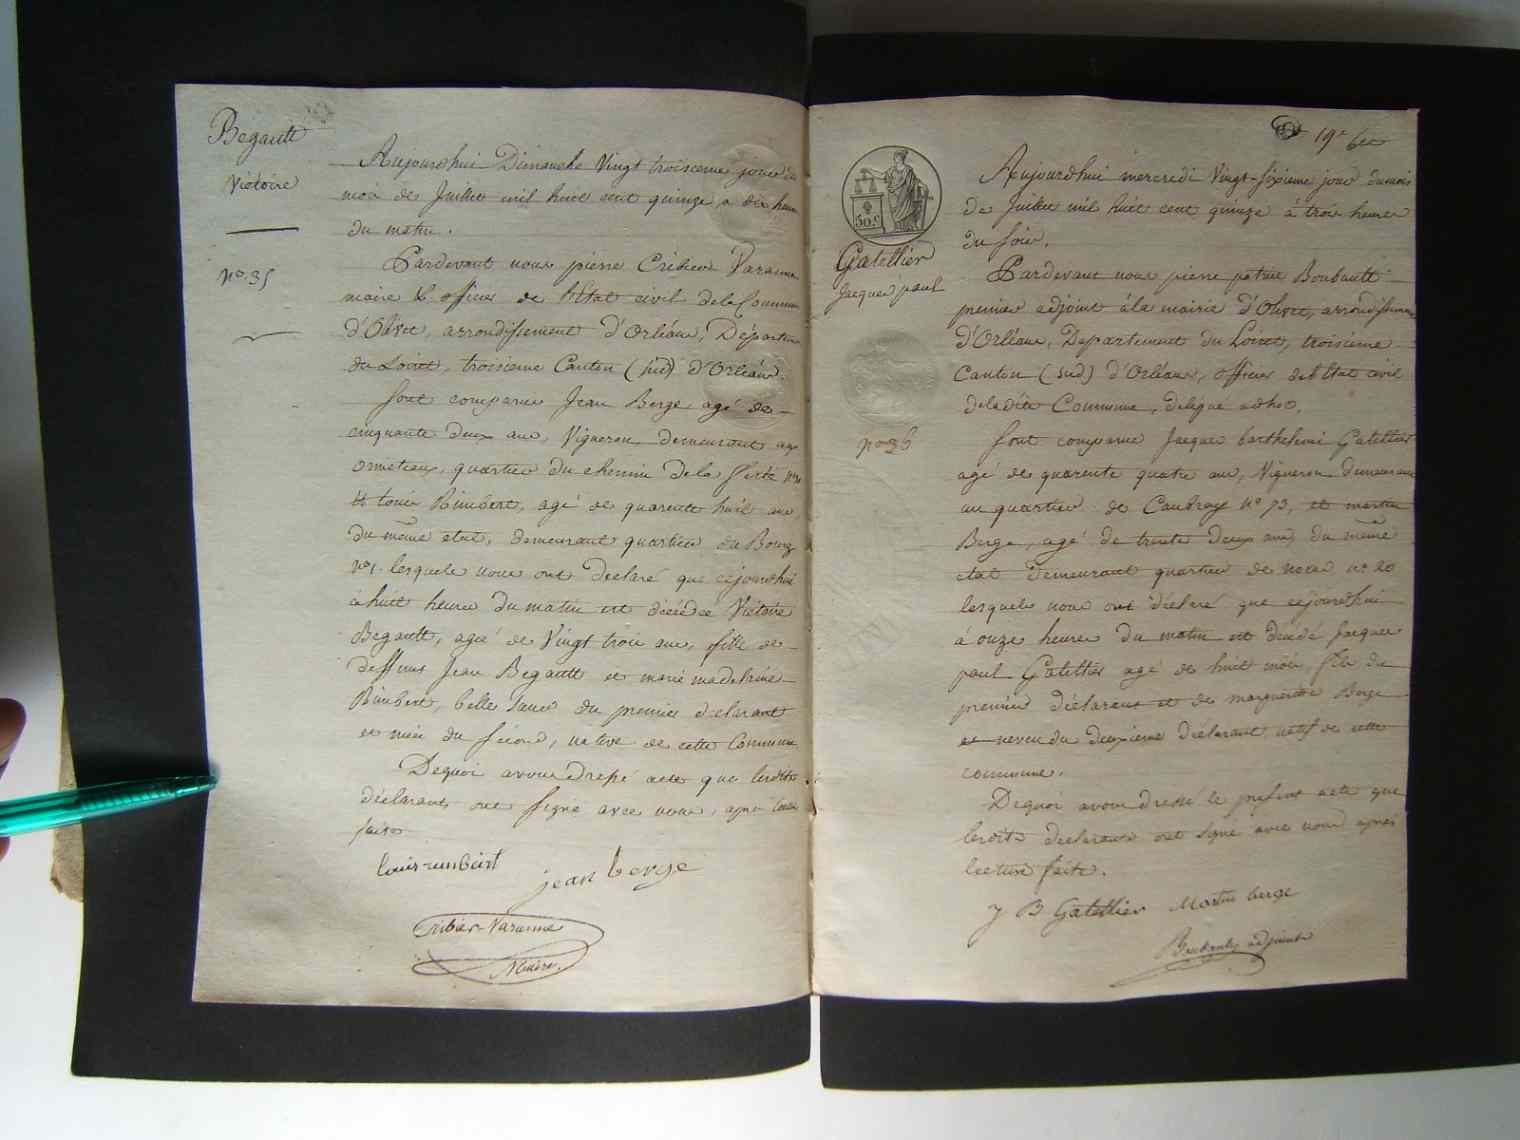 Begault
Victoire
N° 35
Aujourdhui Dimanche Vingt troisieme jour du
mois de Juillet mil huit cent quinze, a dix heures
du matin.
Pardevant nous pierre Cribier Varanne
maire & officier de l'Etat civil de la Commune
d'Olivet, arrondissement d'Orléans, Département
du Loiret, troisieme Canton (sud) d'Orléans.
Sont comparus Jean Berge, agé de
cinquante deux ans, Vigneron, demeurant aux
ormeteaux, quartier du chemin de la ferté
et louis Rimbert, agé de quarente huit ans,
du même etat, demeurant quartier du Bourg
n° 1. lesquels nous ont declaré que cejourdhui
à huit heures du matin est décédée Victoire
Begault, ageé de Vingt trois ans, fille de
deffunts Jean Begault et marie madeleine
Rimbert, belle sœur du premier déclarant
et niece du second, native de cette Commune
Dequoi avons dressé acte que lesdits
déclarants ont signé avec nous, après lecture
faite
louis rimbert
jean berge
Cribier-Varanne
Maire.
19e
50 c
Gatellier
Jacques paul
n° 36
Aujourdhui mercredi Vingt-sixieme jour du mois
de Juillet mil huit cent quinze à trois heures
du soir.
Pardevant nous pierre patrice Boubault
premier adjoint à la mairie d'Olivet, arrondissement
d'Orléans, Département du Loiret, troisieme
Canton (sud) d'Orléans, officier de l'Etat civil
de ladite Commune, delegué adhoc.
Sont comparus Jacques barthelemi Gatellier
agé de quarente quatre ans, Vigneron demeurant
au quartier de Caubray n° 73, et martin
Berge, agé de trente deux ans, du même
etat demeurant quartier de n° 20
lesquels nous ont déclaré que cejourdhui
à onze heures du matin est decedé Jacques
paul Gatellier agé de huit mois, fils du
premier déclarant et de marguerite Berge
et neveu du deuxieme déclarant, natif de cette
commune.
Dequoi avons dressé le present acte que
lesdits declarants ont signé avec nous après
lecture faite.
J B Gatellier Martin berge
Boubault adjoint